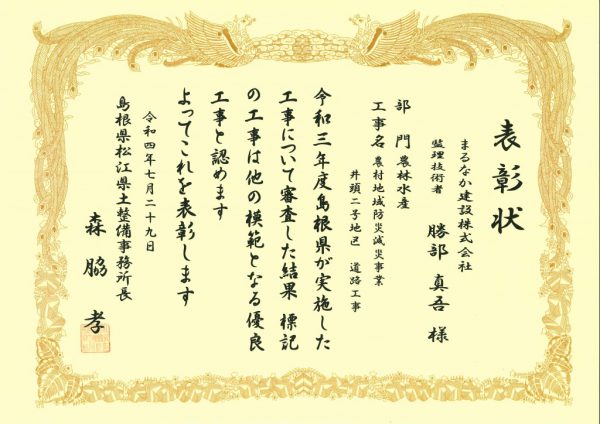 表彰状
まるなか建設株式会社
監理技術者　勝部　真吾　様
部　門　農林水産
工事名　農村地域防災減災事業
井頭二号地区　道路工事
令和三年度島根県が実施した
工事について審査した結果　標記
の工事は他の模範となる優良
工事と認めます
よってこれを表彰します
令和四年七月二十九日
島根県松江県土整備事務所長
森　脇　孝